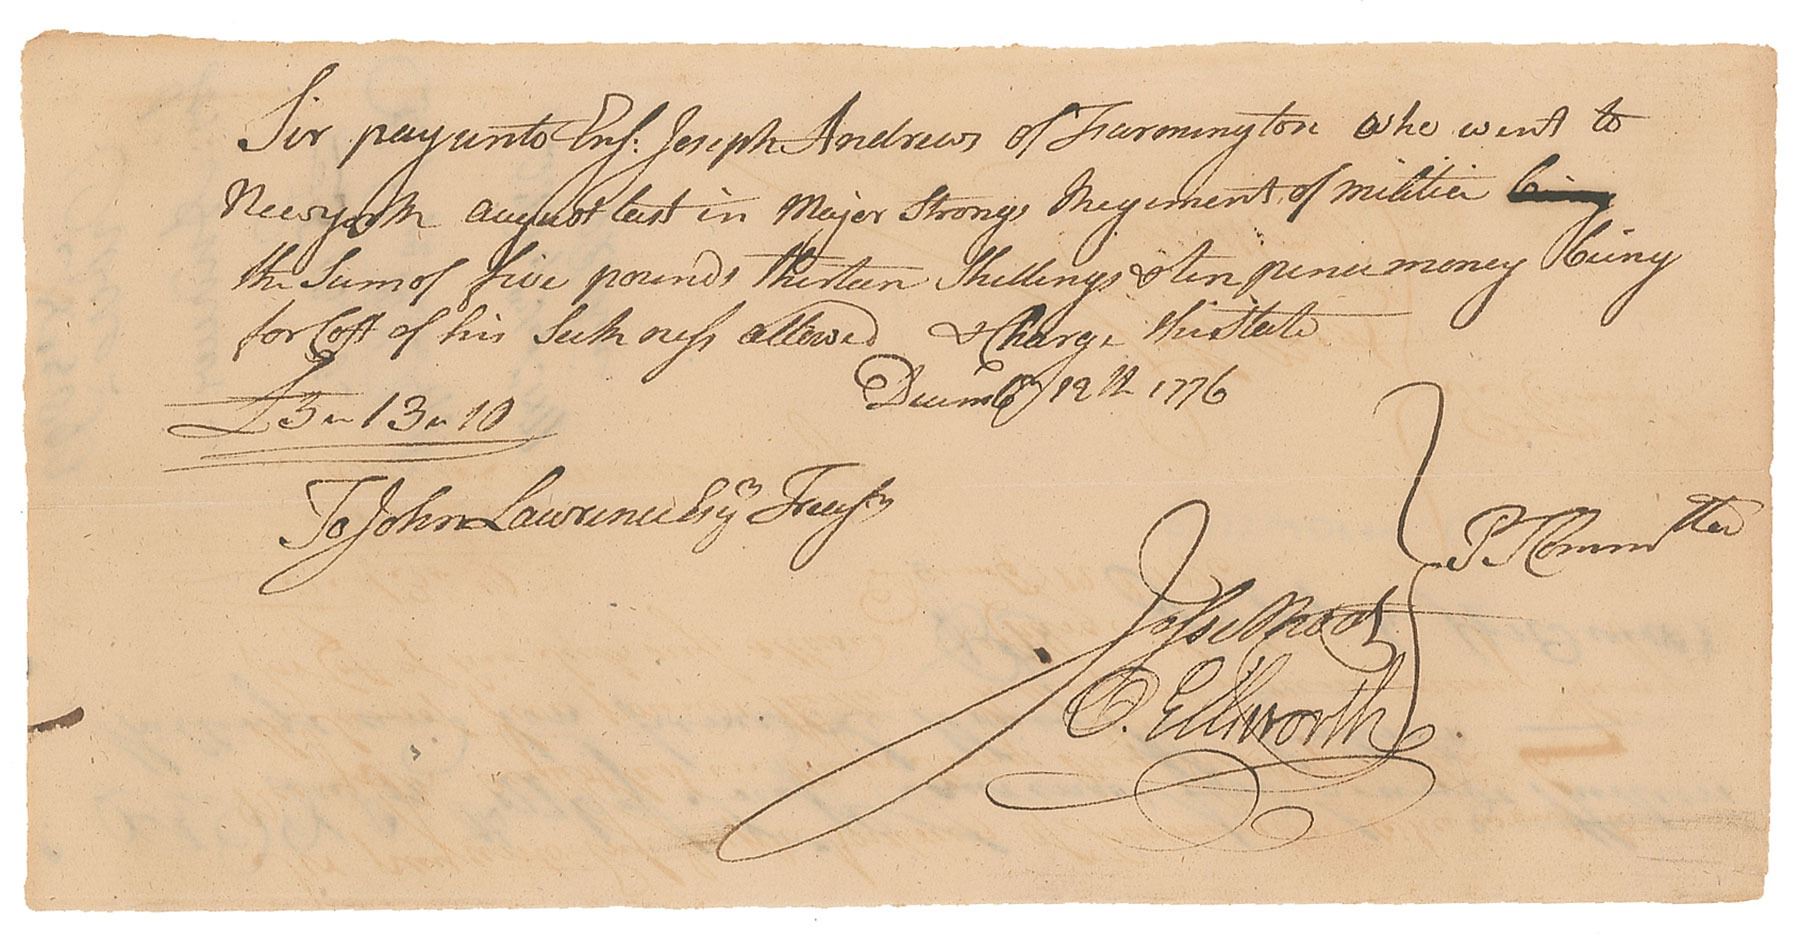 Sir pay unto Ens: Joseph Andrews of Farmington who went to
Newyork august last in Major Strongs Regiment of militia being
the Sum of five pounds thirteen Shillings & ten pence money being
for Cost of his Sickness allowed & Charge this State
Decembr 12th 1776
£5 " 13 " 10
To John Lawrence Esqr Treasr
Jesse Root
O. Ellsworth
P. T. Committee